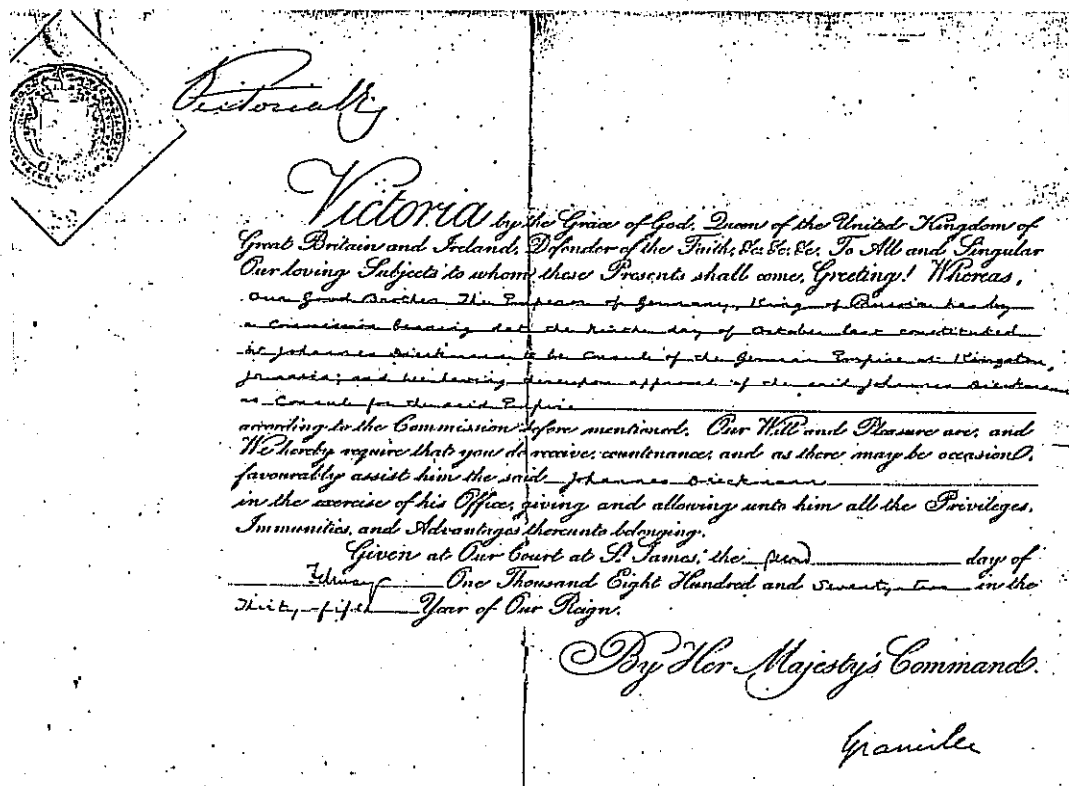 Victoria R
Victoria by the Grace of God, Queen of the United Kingdom of
Great Britain and Ireland, Defender of the Faith, &c. &c. &c. To All and Singular
Our loving Subjects to whom these Presents shall come, Greeting! Whereas,
Our Good Brother The Emperor of Germany, King of Prussia has by
a Commission bearing date the day of October last constituted
Mr Johannes Dieckmann to be Consul of the German Empire at Kingston,
Jamaica; and We having thereupon approved of the said Johannes Dieckmann
as Consul for the said Empire
according to the Commission before mentioned. Our Will and Pleasure are, and
We hereby require that you do receive, countenance, and as there may be occasion,
favourably assist him the said Johannes Dieckmann
in the exercise of his Office, giving and allowing unto him all the Privileges,
Immunities, and Advantages thereunto belonging.
Given at Our Court at St. James, the day of
February One Thousand Eight Hundred and Seventy-two in the
Thirty-fifth Year of Our Reign.
By Her Majesty's Command.
Granville